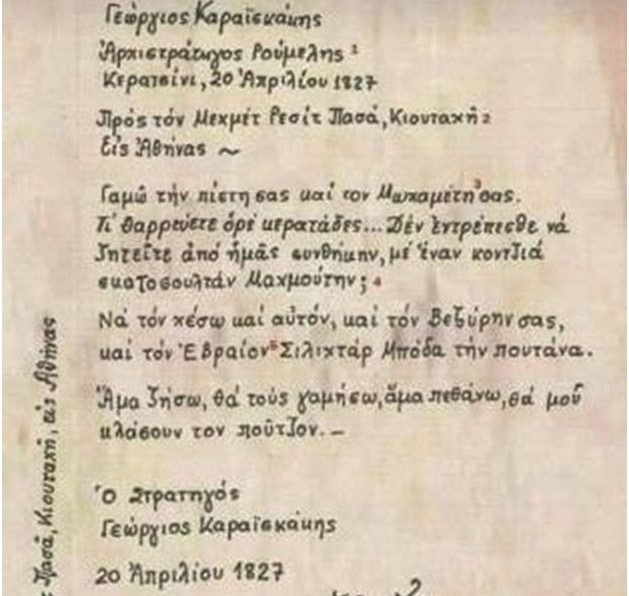 Γεώργιος Καραϊσκάκης
Ἀρχιστράτηγος Ρούμελης ¹
Κερατσίνι, 20 Ἀπριλίου 1827
Πρός τόν Μεχμέτ Ρεσίτ Πασά, Κιουταχῆ 2
Εἰς Ἀθήνας ~
Γαμῶ τήν πίστη σας καί τον Μωχαμέτη 3 σας.
Τί θαρρεύετε ὀρέ κερατάδες... Δέν ἐντρέπεσθε νά
ζητεῖτε ἀπό ἡμᾶς συνθήκην, μέ ἕναν κοντζιά
σκατοσουλτάν Μαχμούτην; 4
Νά τόν χέσω καί αὐτόν, καί τόν Βεζύρην σας,
καί τόν Ἑβραίον 5 Σιλιχτάρ Μπόδα τήν πουτάνα.
Ἅμα ζήσω, θά τούς γαμήσω, ἅμα πεθάνω, θά μοῦ
κλάσουν τον ποῦτζον. –
Ὁ Στρατηγός
Γεώργιος Καραϊσκάκης
20 Ἀπριλίου 1827
Πασᾶ, Κιουταχῆ, εἰς Ἀθήνας